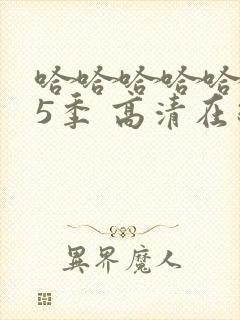 哈哈哈哈哈
5季 高清在
異界魔人